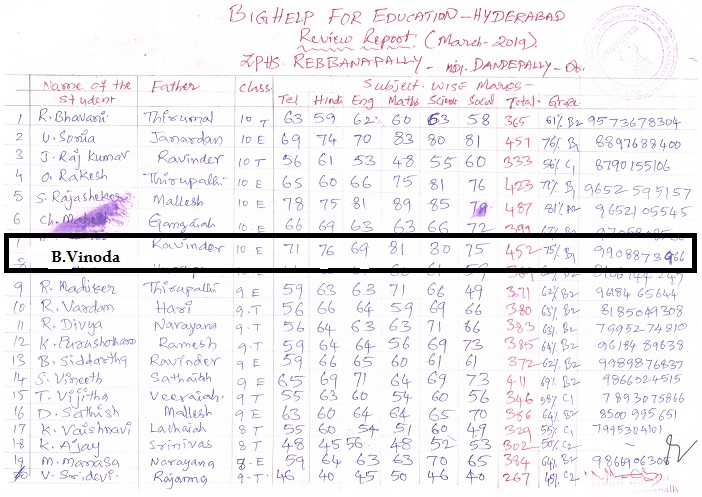 BIGHELP FOR EDUCATION - HYDERABAD
Review Report (March-2019)
ZPHS. REBBANAPALLY - DANDEPALLY -
Subject wise Marks -
Name of the Student Father class Tel Hindi Eng Maths Science Social Total Grade
1 R. Bhavani Thirumal 10 T 63 59 62 60 63 58 365 61% B2 9573678304
2 V. Sonia Janardan 10 E 69 74 70 83 80 81 457 76% B1 8897688400
3 J. Raj Kumar Ravinder 10 T 56 61 53 48 55 60 333 56% C1 8790155106
4 O. Rakesh Thirupathi 10 E 65 60 66 75 81 76 423 71% B1 9652595157
5 S. Rajashekar Mallesh 10 E 78 75 81 89 85 79 487 81% A2 9652105545
6 Ch. Mahesh Gangaiah 10 E 66 69 63 63 66 72 399
B.Vinoda Ravinder 10 E 71 76 69 81 80 75 452 75% B1 9908873966
9 R. Thirupathi 9 E 59 63 63 71 66 49 371 62% B2 9618465644
10 R. Vardan Hari 9.T 56 66 64 59 69 66 380 63% B2 8185049308
11 R. Divya Narayana 9.T 56 64 63 63 71 86 383 63% B2 7995274810
12 K. Purushotham Ramesh 9.T 59 64 64 56 69 73 385 64% B2 9618489638
13 B. Siddartha Ravinder 9 E 59 66 65 60 61 61 372 62% B2 9989876837
14 S. Vineeth Sathaiah 9 E 65 69 71 64 69 73 411 69% B2 9866024515
15 T. Vijitha Veeraiah 9.T 55 63 60 54 60 56 346 58% C1 7893075866
16 D. Sathish Mallesh 9 E 63 60 64 64 65 70 386 64% B2 8500995651
17 K. Vaishnavi Lachaiah 8 T 55 60 54 51 60 49 329 55% C1 7995304101
18 K. Ajay Srinivas 8 T 48 45 56 48 52 53 302 50% C2
19 M. Manasa Narayana 8.E 59 64 63 63 70 65 384 64% B2 9866906308
20 V. Sridevi Rajanna 9-T 46 40 45 50 46 40 267 45% C2